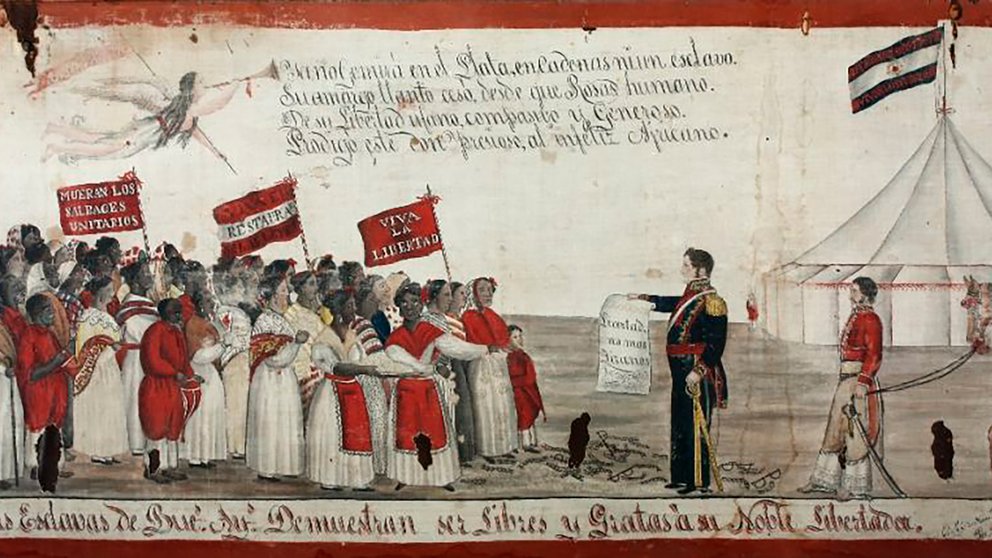 Ya no Gemirá en el Plata, en Cadenas ni un esclavo.
Su amargo llanto ceso, desde que Rosas humano.
De su Libertad ufano, compasibo y Generoso.
Prodigo este don presioso, al infeliz Africano.
MUERAN LOS
SALBAGES
UNITARIOS
RESTAURA
VIVA
LA
LIBERTAD
Livertad
no mas
Tiranos
as Esclavas de Bueˢ. Ayˢ. Demuestran ser Libres y Gratas á su Noble Libertador.